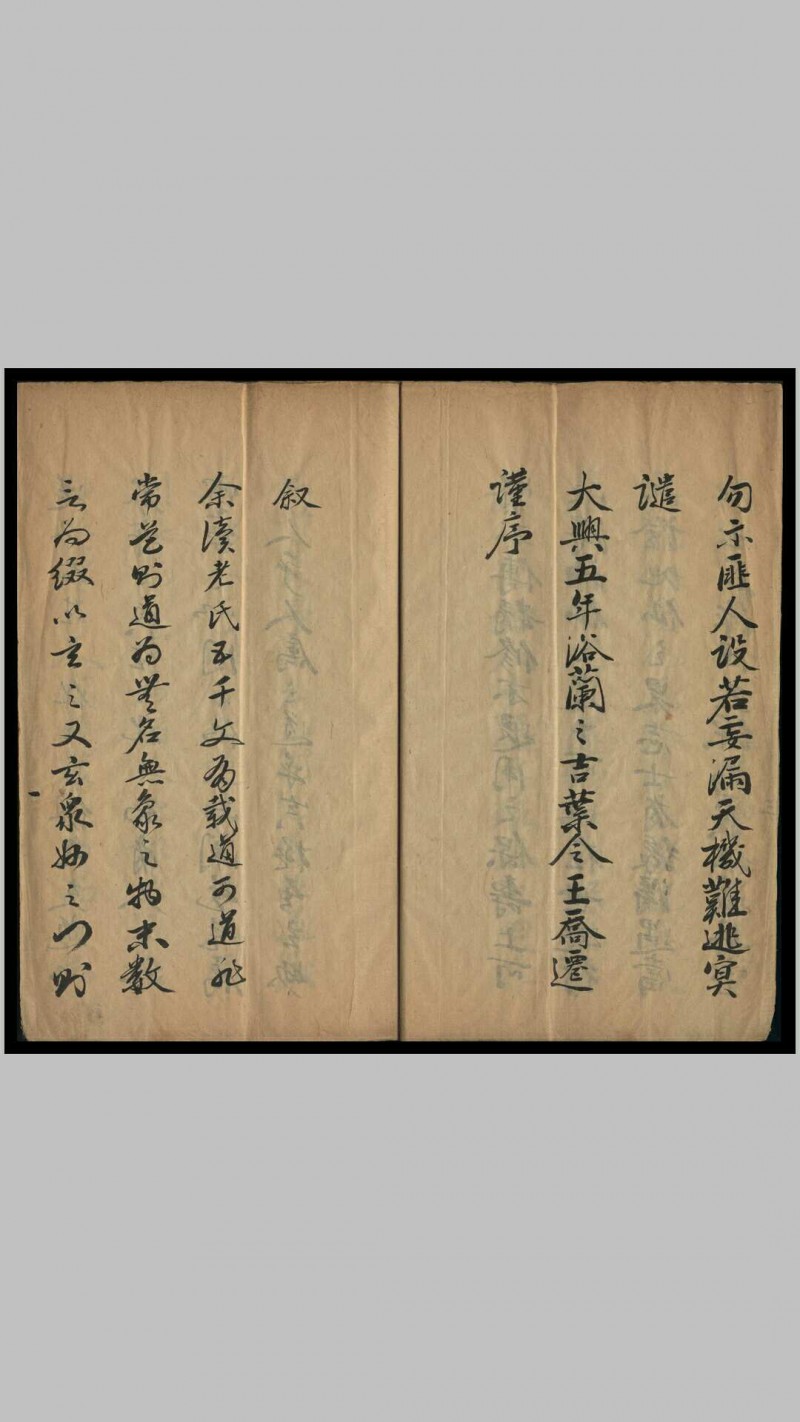 勿示匪人設若妄漏天機難逃冥
譴
大興五年浴蘭之吉葉令王喬遷
謹序
叙
余讀老氏五千文首載道可道非
常道則道為無名無象之物末數
言為綴以玄之又玄衆妙之门則